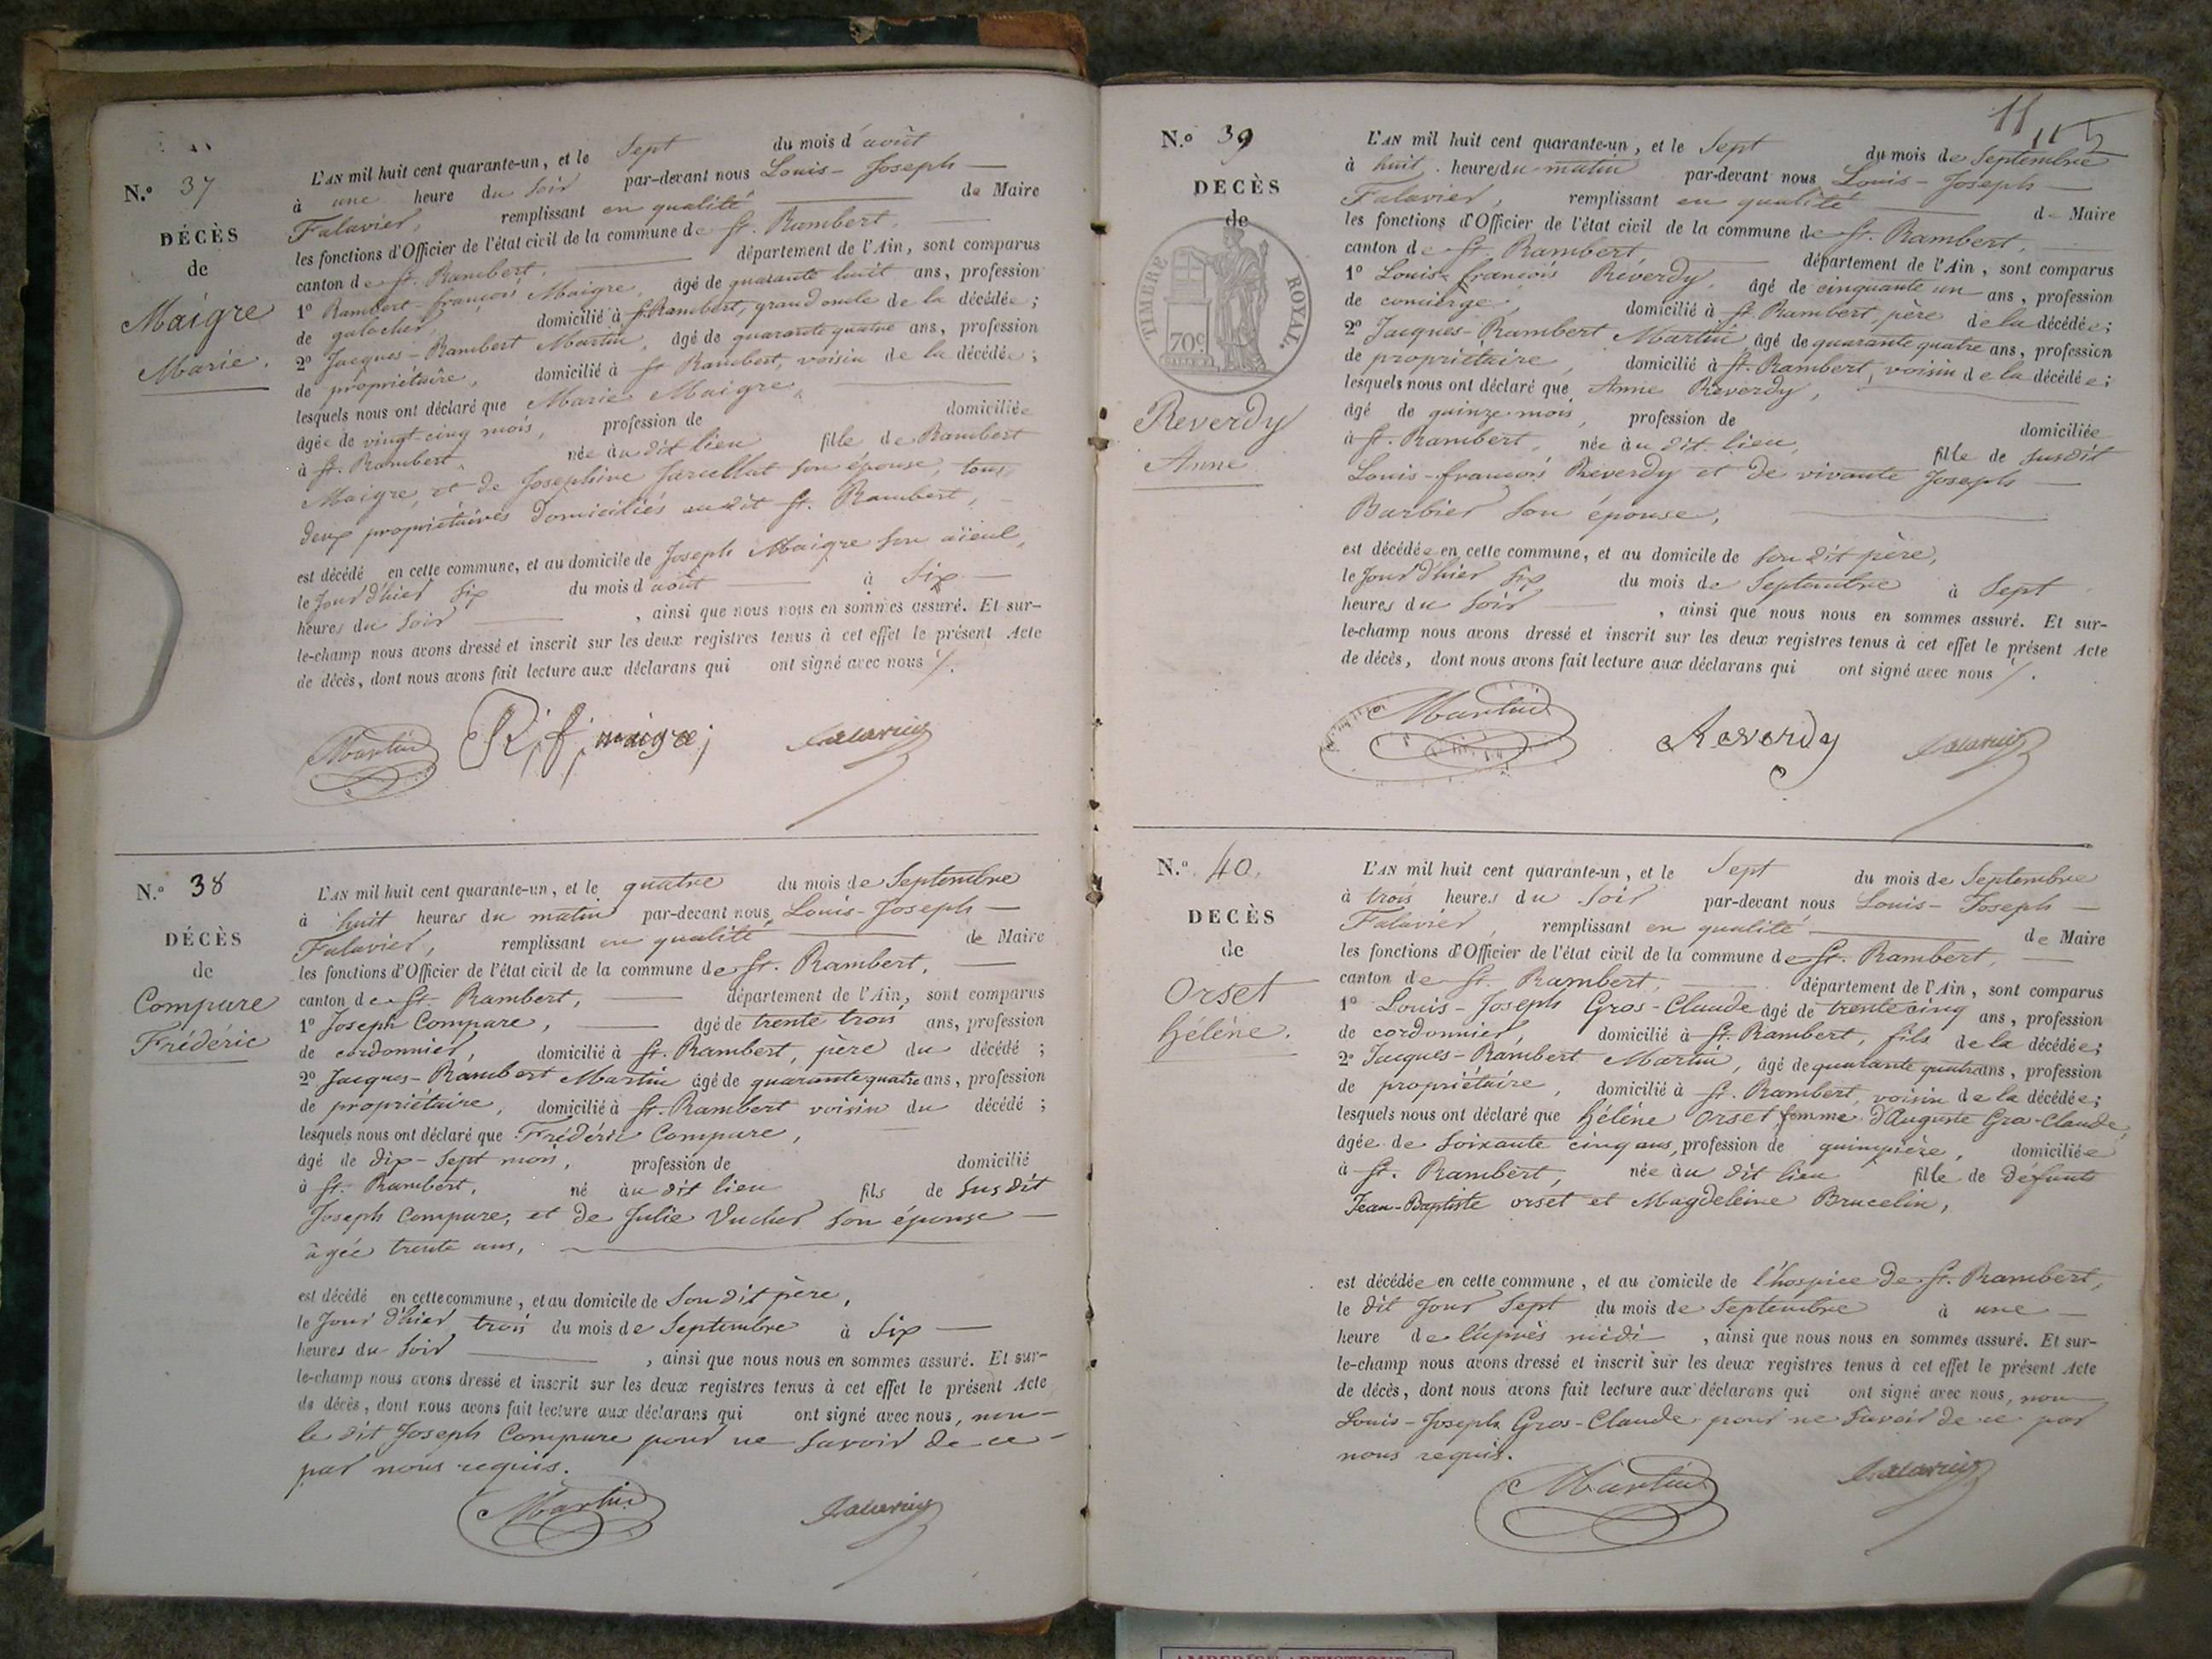 N.º 37
DÉCÈS
de
Maigre
Marie.
L'AN mil huit cent quarante-un, et le Sept du mois d'août
à une heure du Soir par-devant nous Louis-Joseph
Falavier, remplissant en qualité de Maire
les fonctions d'Officier de l'état civil de la commune de St. Rambert,
canton de St. Rambert, département de l'Ain, sont comparus
1º Rambert-françois Maigre, âgé de quarante huit ans, profession
de galocher, domicilié à St. Rambert, grand oncle de la décédée;
2º Jacques-Rambert Martin, âgé de quarante quatre ans, profession
de propriétaire, domicilié à St Rambert, voisin de la décédée;
lesquels nous ont déclaré que Marie Maigre,
âgée de vingt-cinq mois, profession de domiciliée
à St. Rambert, née au dit lieu fille de Rambert
Maigre, et de Josephine Jarcellat son épouse, tous
deux propriétaires domiciliés audit St. Rambert,
est décédé en cette commune, et au domicile de Joseph Maigre son aïeul,
le Jour d'hier Six du mois d'août à Six
heures du Soir , ainsi que nous nous en sommes assuré. Et sur-
le-champ nous avons dressé et inscrit sur les deux registres tenus à cet effet le présent Acte
de décès, dont nous avons fait lecture aux déclarans qui ont signé avec nous /.
Martin R, f, maigre; Falavier
N.º 38
DÉCÈS
de
Compare
Frédéric
L'AN mil huit cent quarante-un, et le quatre du mois de Septembre
à huit heures du matin par-devant nous Louis-Joseph
Falavier, remplissant en qualité de Maire
les fonctions d'Officier de l'état civil de la commune de St. Rambert,
canton de St. Rambert, département de l'Ain, sont comparus
1º Joseph Compare, âgé de trente trois ans, profession
de cordonnier, domicilié à St. Rambert, père du décédé;
2º Jacques-Rambert Martin âgé de quarante quatre ans, profession
de propriétaire, domicilié à St. Rambert voisin du décédé;
lesquels nous ont déclaré que Frédéric Compare,
âgé de dix-Sept mois, profession de domicilié
à St. Rambert, né au dit lieu fils de Susdit
Joseph Compare, et de Julie Vucher son épouse
âgée trente ans,
est décédé en cette commune, et au domicile de Son dit père,
le Jour d'hier trois du mois de Septembre à Six
heures du Soir , ainsi que nous nous en sommes assuré. Et sur-
le-champ nous avons dressé et inscrit sur les deux registres tenus à cet effet le présent Acte
de décès, dont nous avons fait lecture aux déclarans qui ont signé avec nous, non
le dit Joseph Compare pour ne Savoir de ce
par nous requis.
Martin Falavier
11
115
N.º 39
DECÈS
de
TIMBRE ROYAL.
70c
Reverdy
Anne
L'AN mil huit cent quarante-un, et le Sept du mois de Septembre
à huit heures du matin par-devant nous Louis-Joseph
Falavier, remplissant en qualité de Maire
les fonctions d'Officier de l'état civil de la commune de St. Rambert,
canton de St. Rambert département de l'Ain, sont comparus
1º Louis-françois Réverdy, âgé de cinquante un ans, profession
de concierge, domicilié à St. Rambert, père de la décédée;
2º Jacques-Rambert Martin âgé de quarante quatre ans, profession
de propriétaire, domicilié à St. Rambert, voisin de la décédée;
lesquels nous ont déclaré que Anne Reverdy,
âgé de quinze mois, profession de domiciliée
à St. Rambert, née au dit lieu, fille de Susdit
Louis-françois Reverdy et de vivante Joseph
Barbier Son épouse,
est décédée en cette commune, et au domicile de Son dit père,
le Jour d'hier Six du mois de Septembre à Sept
heures du Soir , ainsi que nous nous en sommes assuré. Et sur-
le-champ nous avons dressé et inscrit sur les deux registres tenus à cet effet le présent Acte
de décès, dont nous avons fait lecture aux déclarans qui ont signé avec nous /.
Martin Reverdy Falavier
N.º 40.
DECÈS
de
Orset
hélène.
L'AN mil huit cent quarante-un, et le Sept du mois de Septembre
à trois heures du Soir par-devant nous Louis-Joseph
Falavier, remplissant en qualité de Maire
les fonctions d'Officier de l'état civil de la commune de St. Rambert,
canton de St. Rambert, département de l'Ain, sont comparus
1º Louis-Joseph Gros-Claude âgé de trente cinq ans, profession
de cordonnier, domicilié à St. Rambert, fils de la décédée;
2º Jacques-Rambert Martin, âgé de quarante quatre ans, profession
de propriétaire, domicilié à St. Rambert, voisin de la décédée;
lesquels nous ont déclaré que hélène Orset femme d'Auguste Gros-Claude,
âgée de Soixante cinq ans, profession de domiciliée
à St. Rambert, née au dit lieu fille de défunts
Jean-Baptiste orset et Magdeleine Brucelin,
est décédée en cette commune, et au domicile de l'hospice de St. Rambert,
le dit Jour Sept du mois de Septembre à une
heure de l'après midi , ainsi que nous nous en sommes assuré. Et sur-
le-champ nous avons dressé et inscrit sur les deux registres tenus à cet effet le présent Acte
de décès, dont nous avons fait lecture aux déclarans qui ont signé avec nous, non
Louis-Joseph Gros-Claude pour ne Savoir de ce par
nous requis.
Martin Falavier